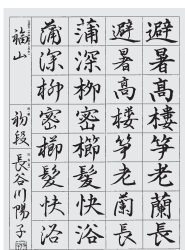 避暑高樓笋老蘭長
避暑高楼笋老蘭長
蒲深柳密櫛髪快浴
蒲深柳密櫛髪快浴
福山
初段 長谷川陽子